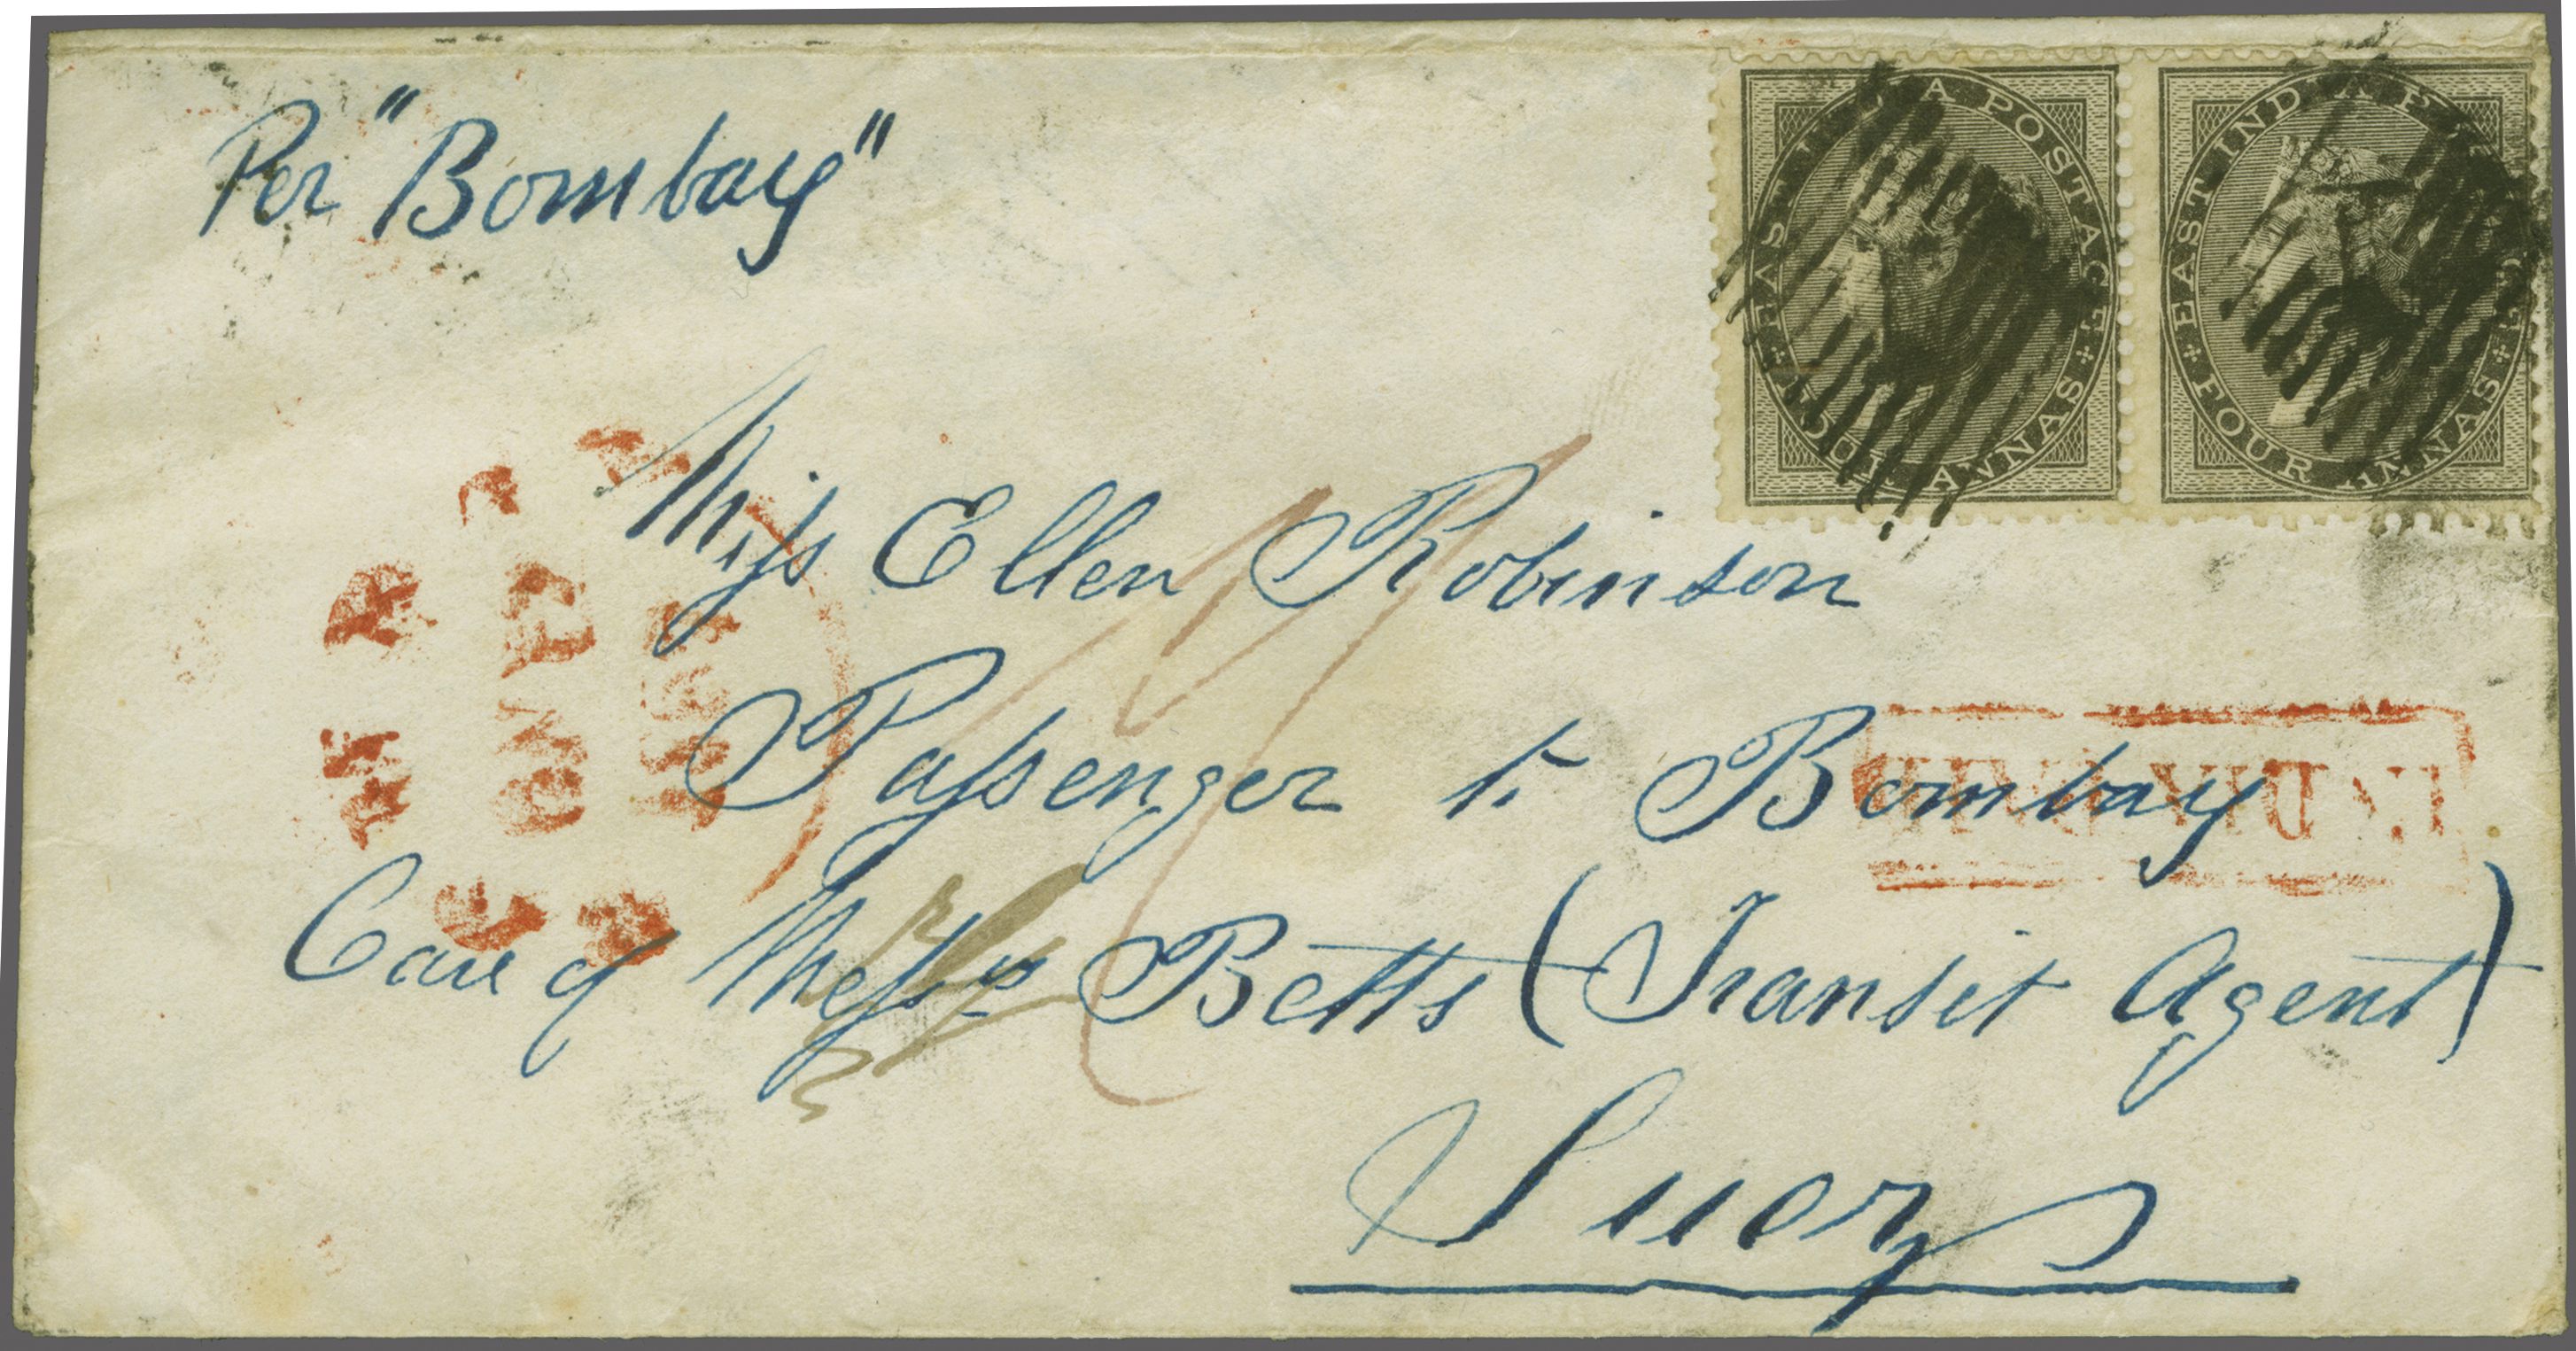 Per "Bombay"
EAST INDIA POSTAGE
FOUR ANNAS
EAST INDIA
FOUR ANNAS
Miss Ellen Robinson
Passenger to Bombay
INDIA PAID
Care of Messrs Betts (Transit Agent)
Suez